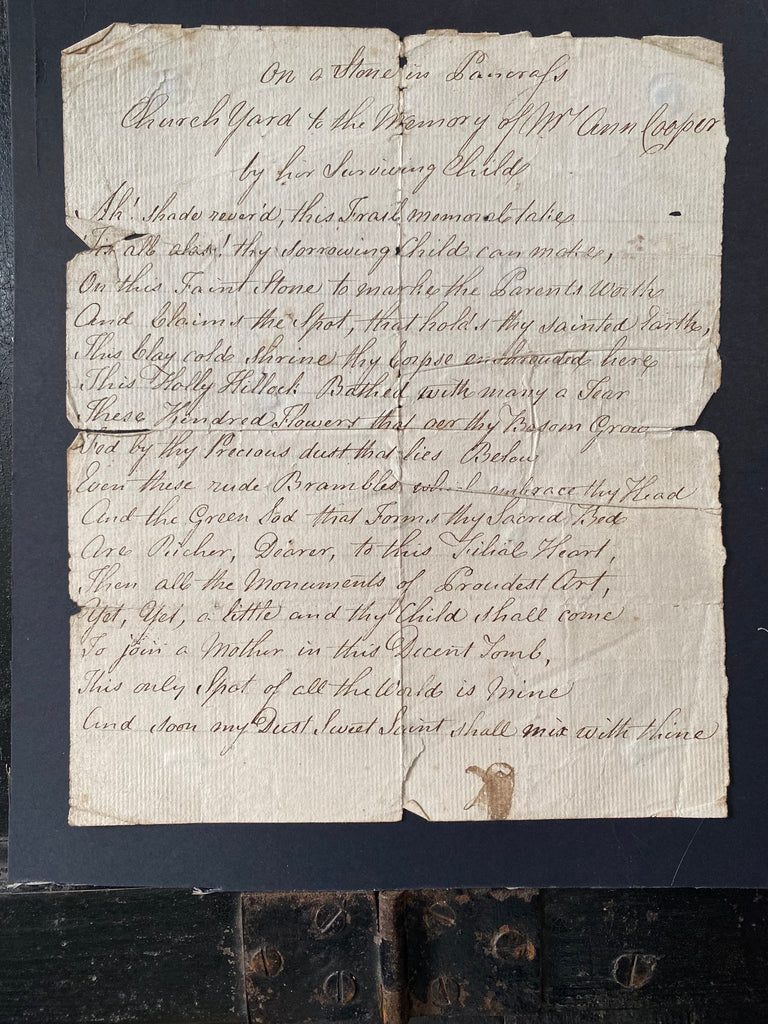 On a Stone in Pancraſs
Church Yard to the Memory of Mrs Ann Cooper
by her Surviving Child
Ah! shade rever'd, this Frail memorel take
For all alas! thy sorrowing Child can make,
On this Faint Stone to marke the Parents Worth
And Claims the Spot, that holds thy sainted Earth,
This Clay cold shrine thy Corpse enshrouded here
This Holly Hillock Bathed with many a Tear
These Kindred Flowers that oer thy Bosom Grow
Fed by thy Precious dust that lies Below
Even these rude Brambles embrace thy Head
And the Green Sod that Forms thy Sacred Bed
Are Richer, Dearer, to this Filial Heart,
Then all the Monuments of Proudest Art,
Yet, Yet, a little and thy Child shall come
To join a Mother in this Decent Tomb,
This only Spot of all the World is mine
And soon my Dust Sweet Saint shall mix with thine